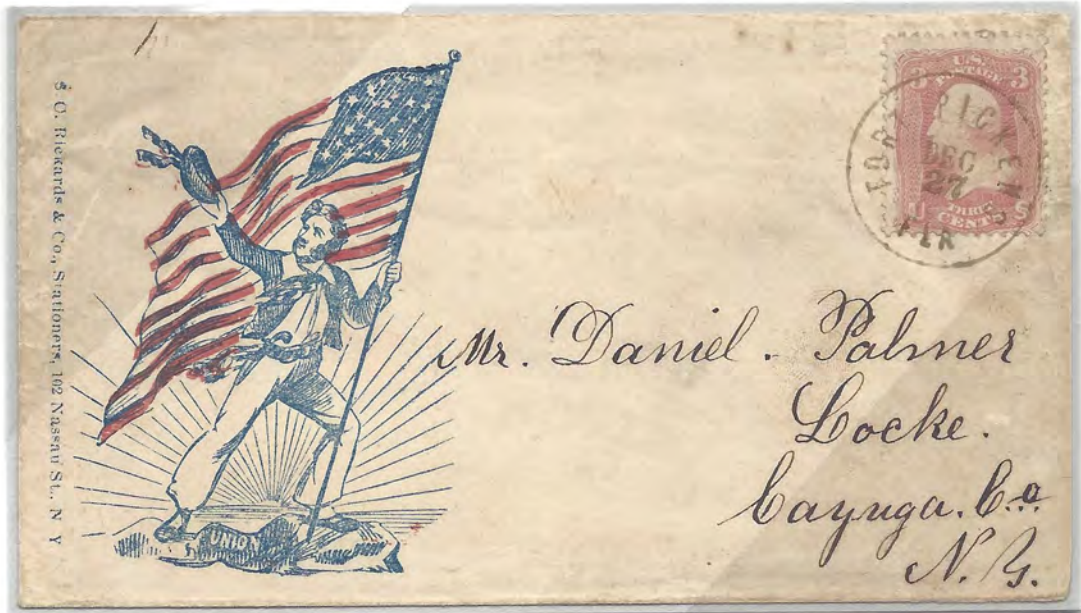 S. C. Rickards & Co., Stationers, 102 Nassau St., N Y
UNION
3 U.S. POSTAGE 3
U THREE CENTS S
FORT PICKENS
DEC
27
FLA
Mr. Daniel. Palmer
Locke.
Cayuga. Co.
N. Y.